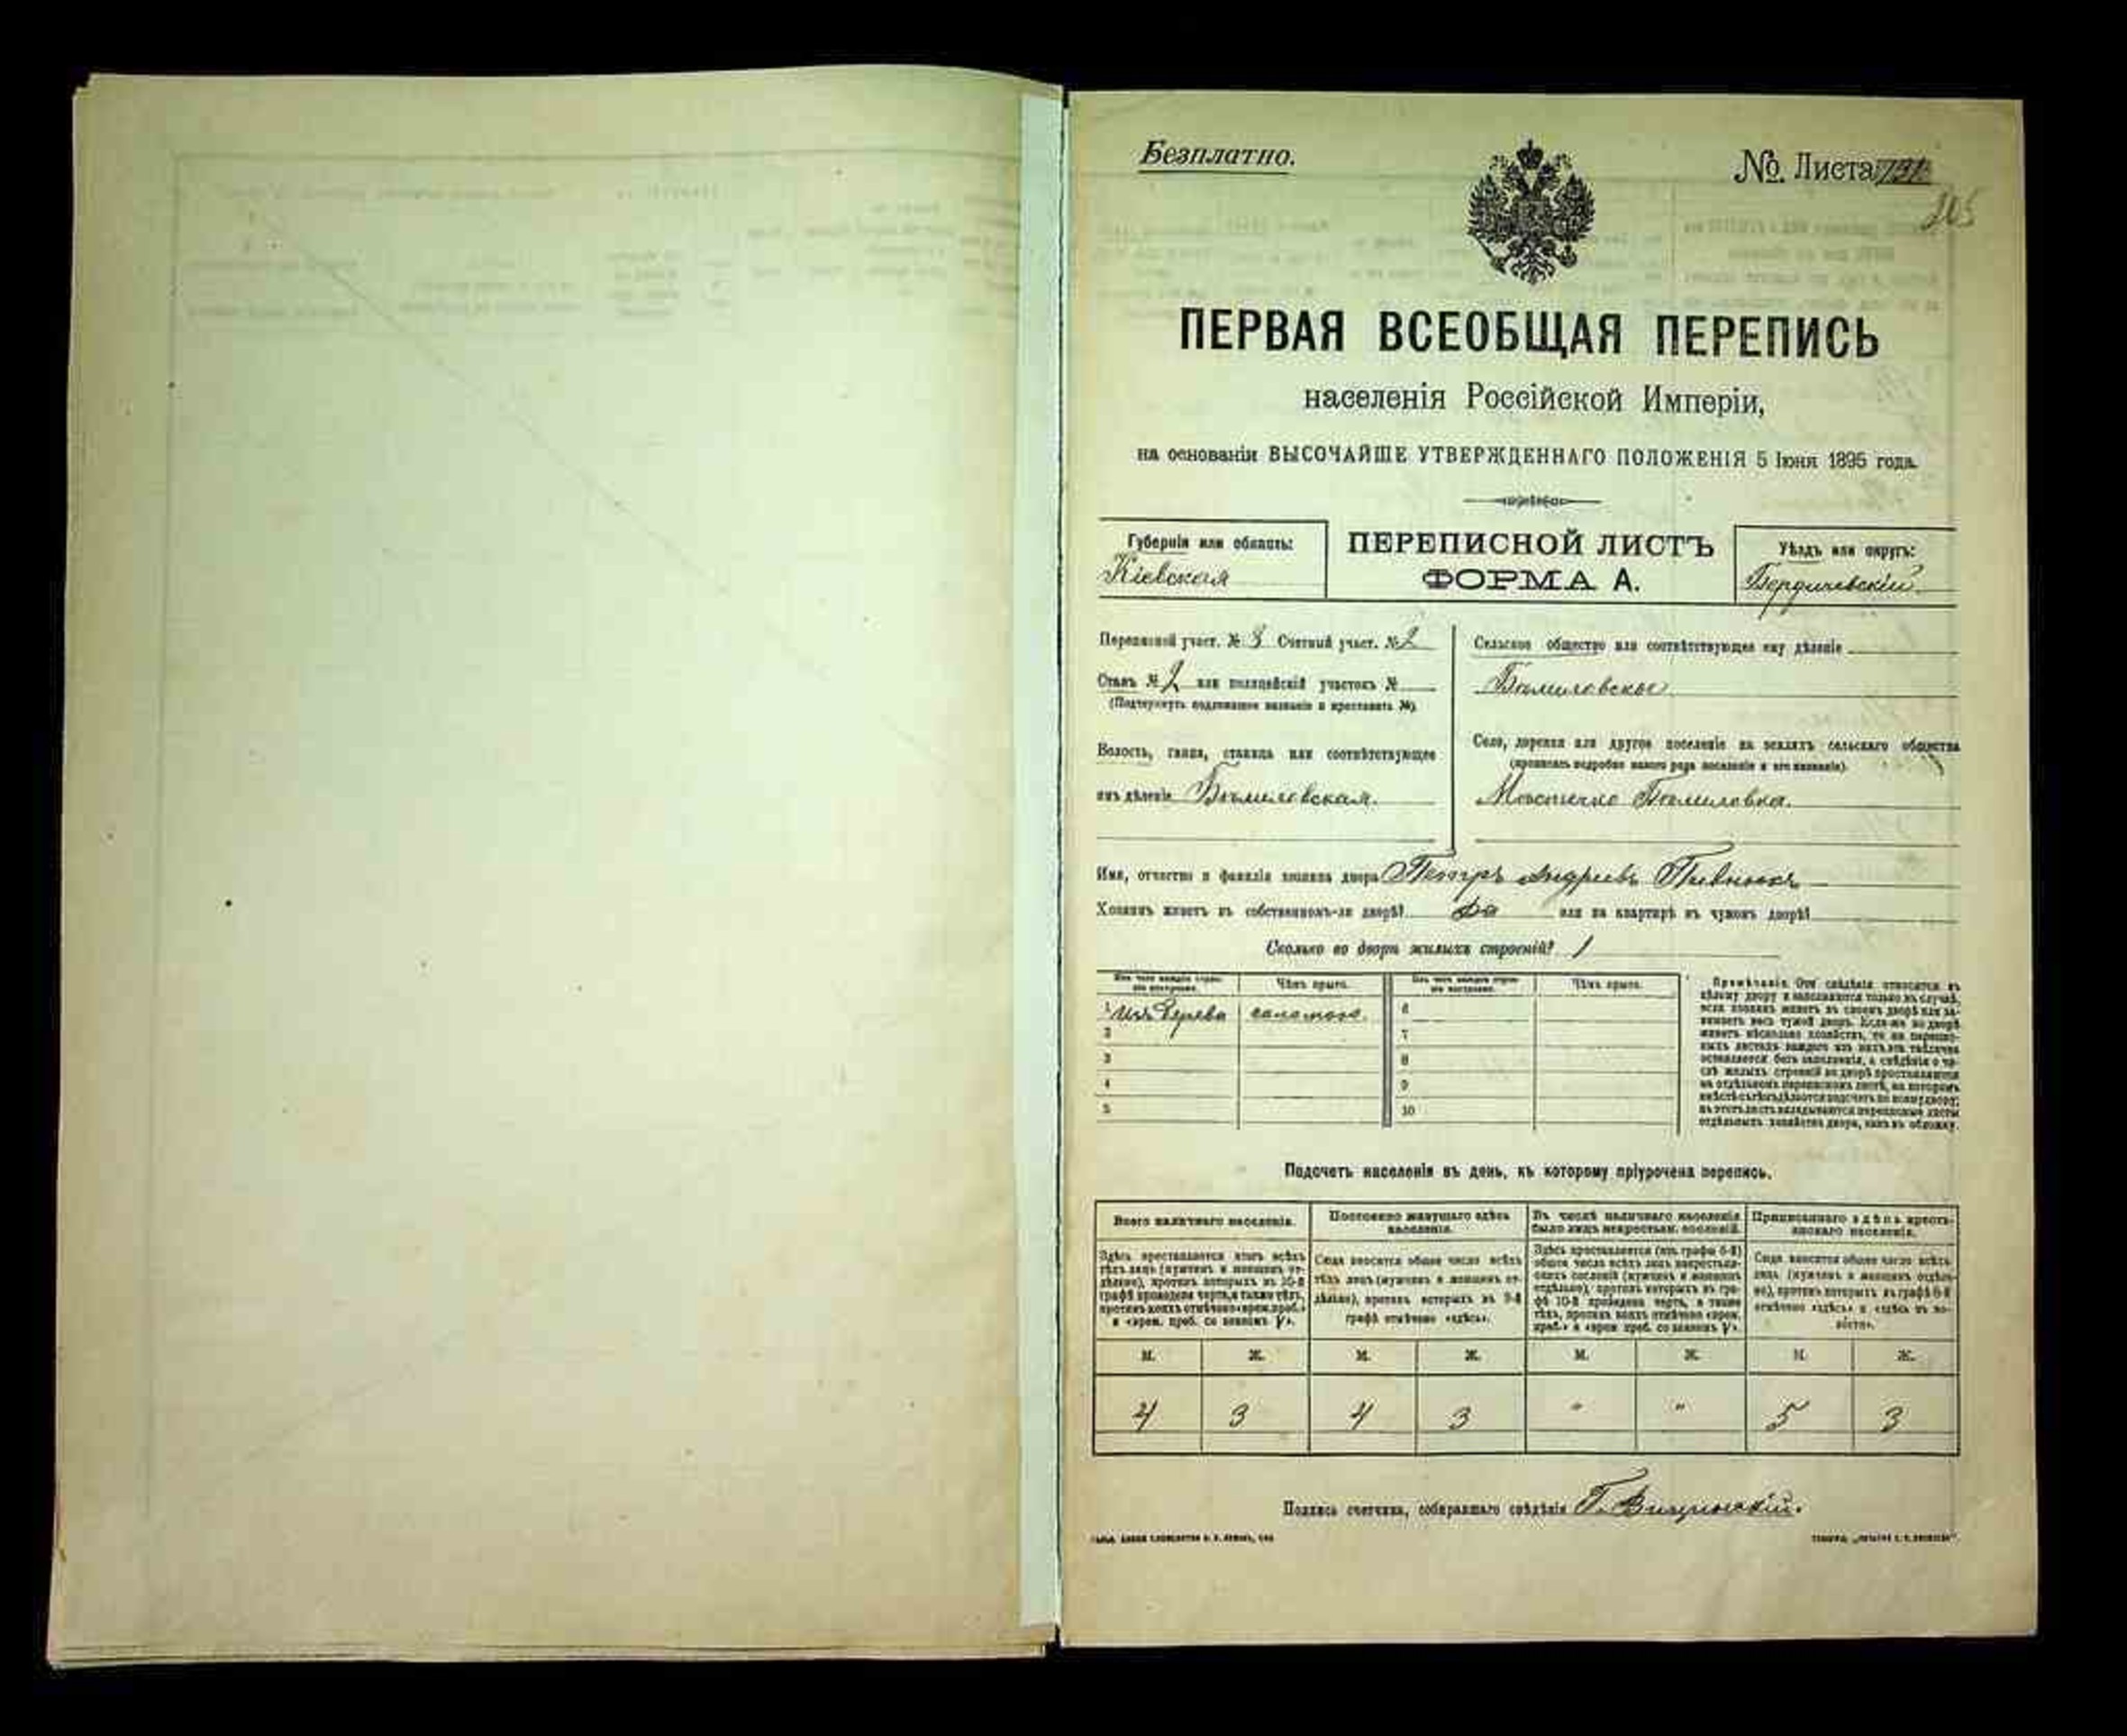 Безплатно.
№ Листа 731
205
ПЕРВАЯ ВСЕОБЩАЯ ПЕРЕПИСЬ
населенія Россійской Имперіи,
на основаніи ВЫСОЧАЙШЕ УТВЕРЖДЕННАГО ПОЛОЖЕНІЯ 5 Іюня 1895 года.
Губернія или область:
Кіевская
ПЕРЕПИСНОЙ ЛИСТЪ
ФОРМА А.
Уѣздъ или округъ:
Бердичевскій
Переписной участ. № 3 Счетный участ. № 2
Станъ № 2 или полицейскій участокъ №
(Подчеркнуть подлежащее названіе и проставить №).
Волость, гмина, станица или соотвѣтствующее
имъ дѣленіе
Сельское общество или соотвѣтствующее ему дѣленіе
Село, деревня или другое поселеніе на земляхъ сельскаго общества
(прописать подробно какого рода поселеніе и его названіе).
Имя, отчество и фамилія хозяина двора Петръ Андреевъ
Хозяинъ живетъ въ собственномъ-ли дворѣ? да или на квартирѣ въ чужомъ дворѣ?
Сколько во дворѣ жилыхъ строеній? 1
Изъ чего каждое строеніе построено.
Чѣмъ крыто.
Изъ чего каждое строеніе построено.
Чѣмъ крыто.
1 изъ дерева соломою. 6
2 7
3 8
4 9
5 10
Примѣчаніе. Эти свѣдѣнія относятся къ
цѣлому двору и заполняются только въ случаѣ,
если хозяинъ живетъ въ своемъ дворѣ или за-
нимаетъ весь чужой дворъ. Если-же во дворѣ
живетъ нѣсколько хозяйствъ, то на перепис-
ныхъ листахъ каждаго изъ нихъ эта табличка
оставляется безъ заполненія, а свѣдѣнія о чи-
слѣ жилыхъ строеній во дворѣ проставляются
на отдѣльномъ переписномъ листѣ, на которомъ
вмѣстѣ съ тѣмъ дѣлается подсчетъ по всему двору;
въ этотъ листъ вкладываются переписные листы
отдѣльныхъ хозяйствъ двора, какъ въ обложку.
Подсчетъ населенія въ день, къ которому пріурочена перепись.
Всего наличнаго населенія.
Здѣсь проставляется итогъ всѣхъ
тѣхъ лицъ (мужчинъ и женщинъ от-
дѣльно), противъ которыхъ въ 10-й
графѣ проведена черта, а также тѣхъ,
противъ коихъ отмѣчено «врем. преб.»
и «врем. преб. со знакомъ V».
Постоянно живущаго здѣсь
населенія.
Сюда вносится общее число всѣхъ
тѣхъ лицъ (мужчинъ и женщинъ от-
дѣльно), противъ которыхъ въ 9-й
графѣ отмѣчено «здѣсь».
Въ числѣ наличнаго населенія
было лицъ некрестьян. сословій.
Здѣсь проставляется (изъ графы 6-й)
общее число всѣхъ лицъ некрестьян-
скихъ сословій (мужчинъ и женщинъ
отдѣльно), противъ которыхъ въ гра-
фѣ 10-й проведена черта, а также
тѣхъ, противъ коихъ отмѣчено «врем.
преб.» и «врем. преб. со знакомъ V».
Приписаннаго здѣсь кресть-
янскаго населенія.
Сюда вносится общее число всѣхъ
лицъ (мужчинъ и женщинъ отдѣль-
но), противъ которыхъ въ графѣ 8-й
отмѣчено «здѣсь» и «здѣсь въ во-
лости».
М. Ж. М. Ж. М. Ж. М. Ж.
4 3 4 3 " " 5 3
Подпись счетчика, собиравшаго свѣдѣнія